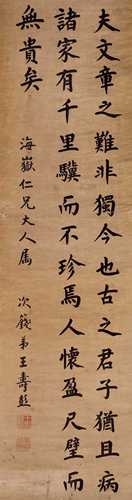 夫文章之難非獨今也古之君子猶且病
諸家有千里驥而不珍焉人懷盈尺璧而
無貴矣
海嶽仁兄大人属
次篯弟王壽彭